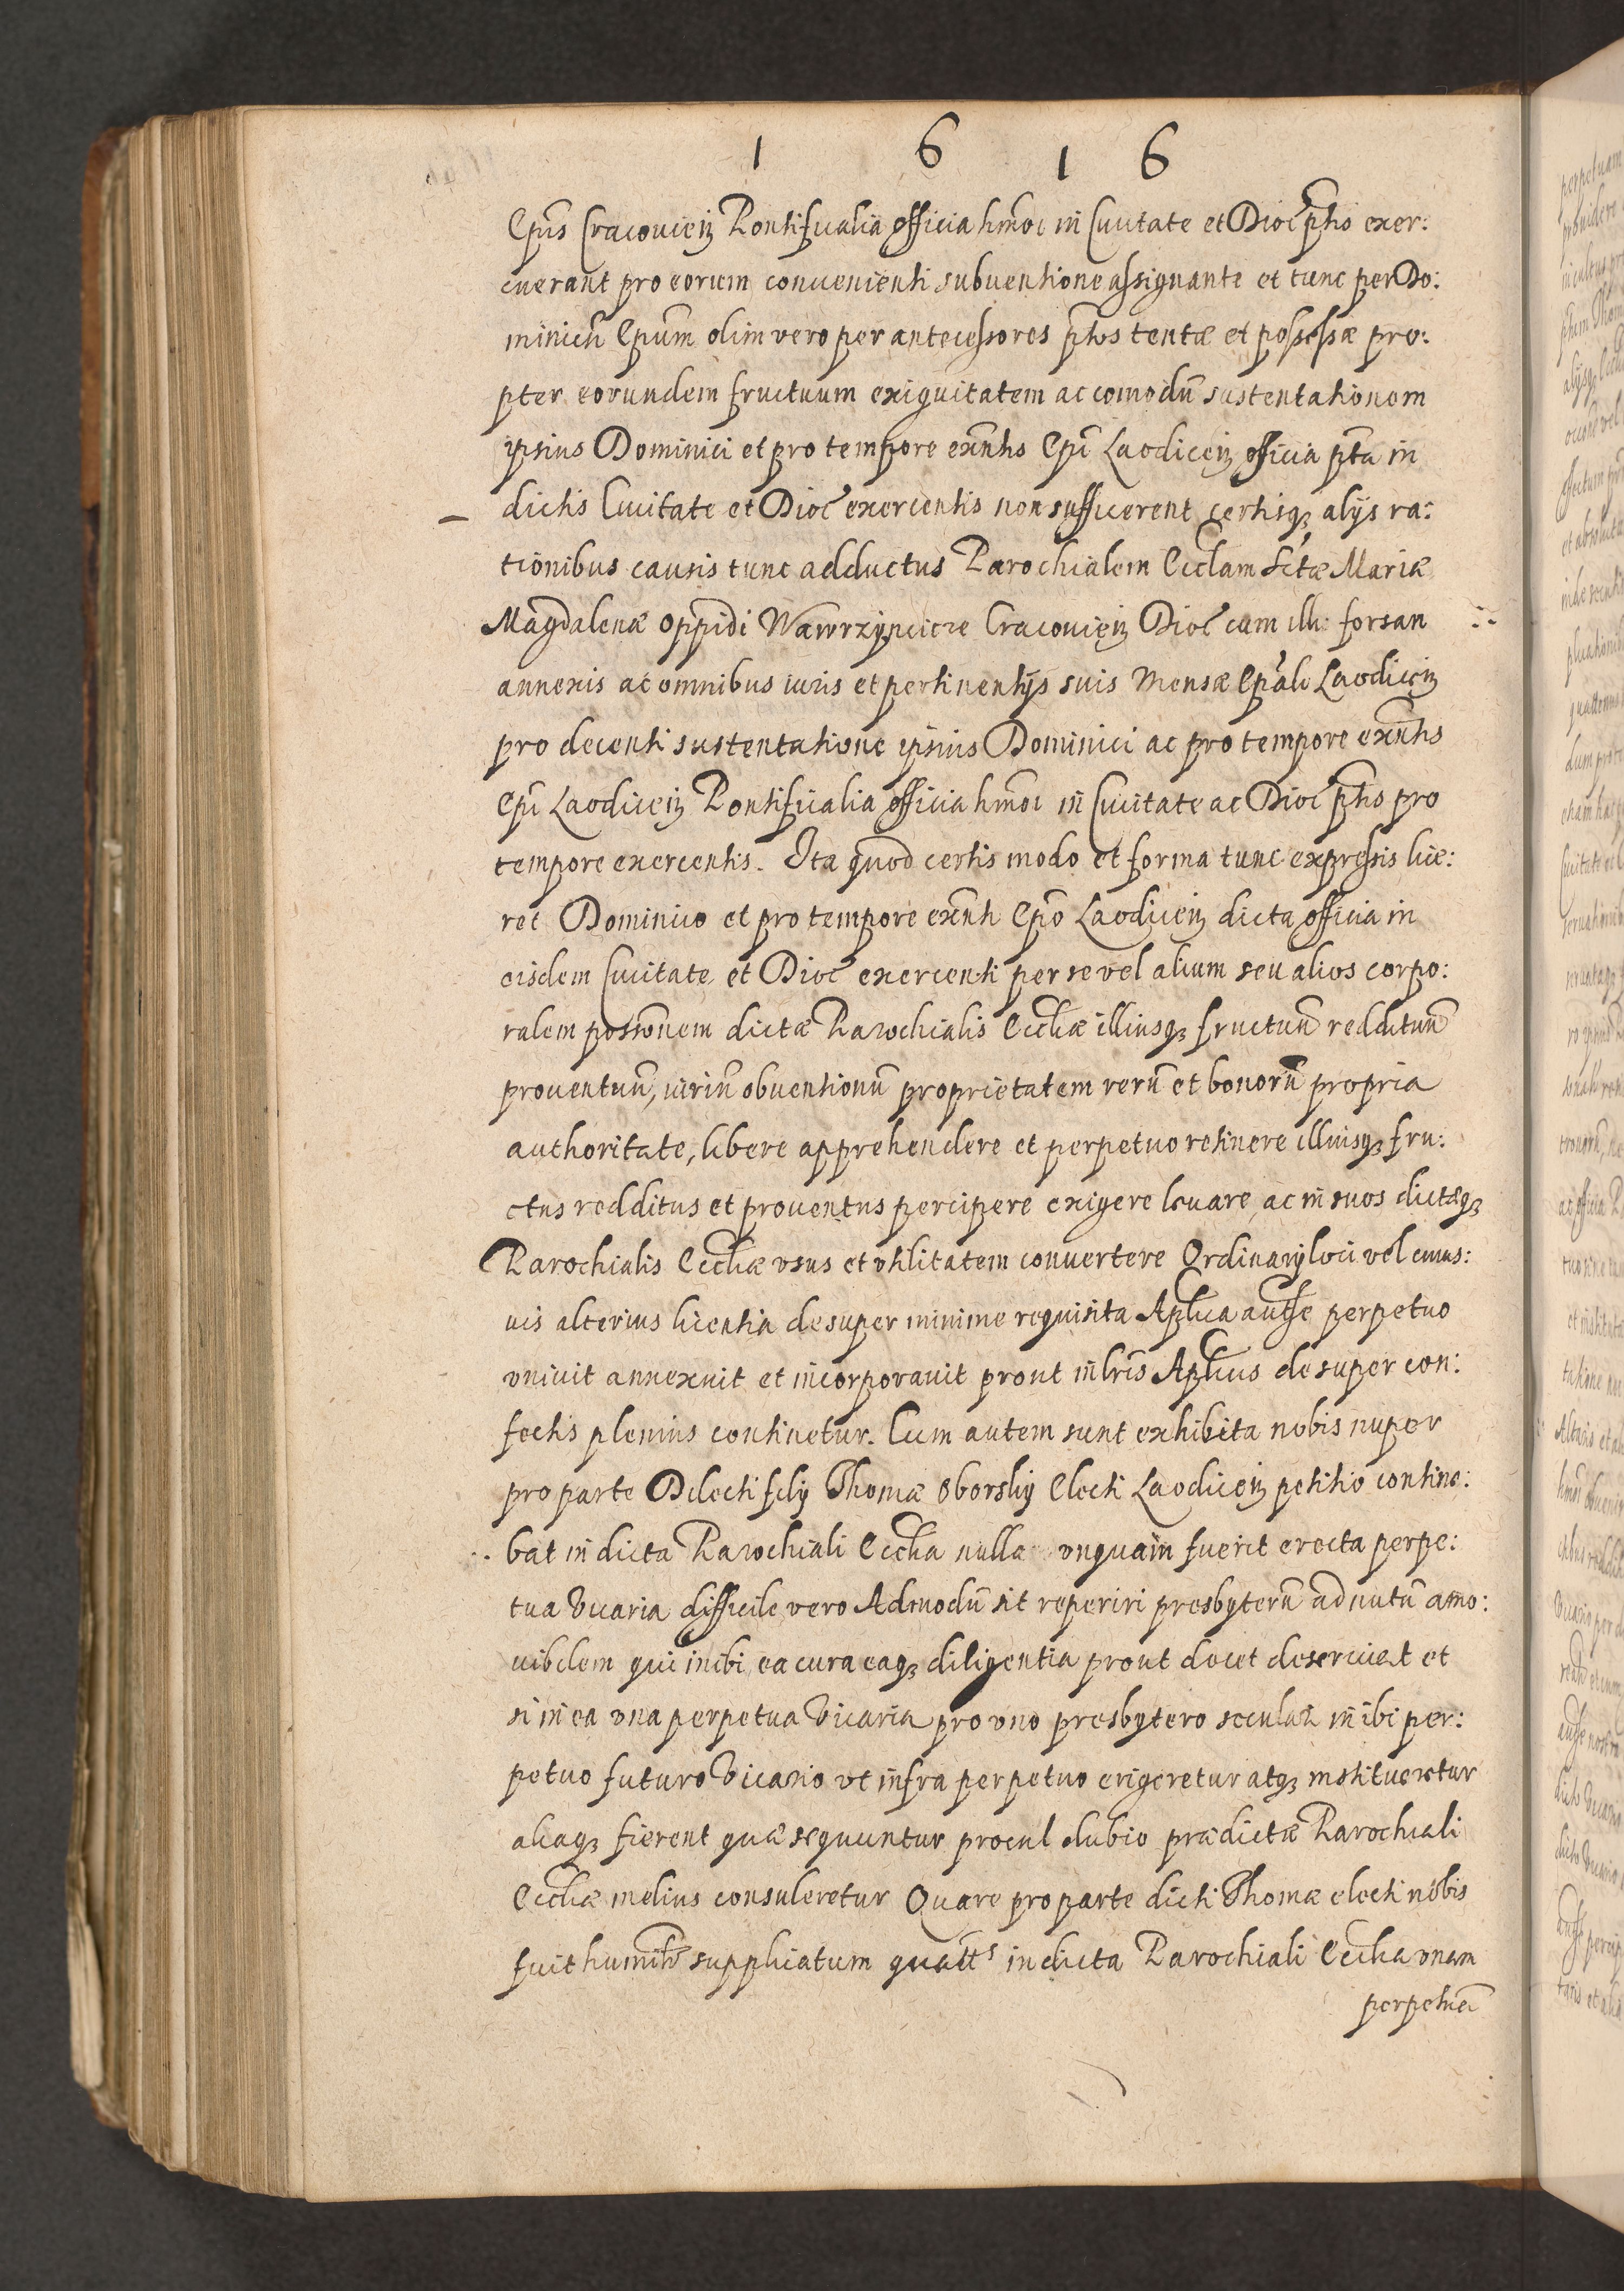 1 6 1 6
Epūs Cracouieñ Pontificalia officia hmōi in Ciuitate et Dioc̄ p̄tis exer:
cuerant pro eorum conuenienti subuentione assignante et tunc per Do:
minicū Epūm olim vero per antecessores p̄tos tentæ et possessæ pro:
pter eorundem fructuum exiguitatem ac comodū sustentationem
ipsius Dominici et pro tempore exn̄tis Epī Laodiceñ officia p̄ta in
dictis Ciuitate et Dioc̄ exercentis non sufficerent certisq; alijs ra:
tionibus causis tunc adductus Parochialem Eccl̄am Sctæ Mariæ
Magdalenæ oppidi Wawrzyncicze Cracouieñ Dioc̄ cum illi: forsan
annexis ac omnibus iuris et pertinentijs suis Mensæ Ep̄ali Laodiceñ
pro decenti sustentatione ipsius Dominici ac pro tempore exn̄tis
Epī Laodiceñ Pontificalia officia hmōi in Ciuitate ac Dioc̄ p̄tis pro
tempore exercentis. Ita quod certis modo et forma tunc expressis lice:
ret Dominico et pro tempore exn̄ti Epō Laodiceñ dicta officia in
eisdem Ciuitate et Dioc̄ exercenti per se vel alium seu alios corpo:
ralem possōnem dictæ Parochialis Eccl̄iæ illiusq; fructuū reddituū
prouentuū, iuriū obuentionū proprietatem rerū et bonorū propria
authoritate, libere apprehendere et perpetuo retinere illiusq; fru:
ctus redditus et prouentus percipere exigere leuare, ac in suos dictæq;
Parochialis Eccl̄iæ vsus et vtilitatem conuertere Ordinarij loci vel cuius:
uis alterius licentia desuper minime requisita Ap̄lica auth̄e perpetuo
vniuit annexuit et incorporauit prout in l̄ris Ap̄licis desuper con:
fectis plenius continetur. Cum autem sunt exhibita nobis nuper
pro parte Dilecti filij Thomæ Oborskij Electi Laodiceñ petitio contine:
bat in dicta Parochiali Eccl̄ia nulla vnquam fuerit erecta perpe:
tua Vicaria difficile vero Admodū sit reperiri presbyterū ad nutū amo:
uibilem qui inibi ea cura eaq; diligentia prout decet deseruiat et
si in ea vna perpetua Vicaria pro vno presbytero seculari inibi per:
petuo futuro Vicario vt infra perpetuo erigeretur atq; institueretur
aliaq; fierent quæ sequuntur procul dubio prædictæ Parochiali
Eccl̄iæ melius consuleretur Quare pro parte dicti Thomæ electi nobis
fuit humil̄r supplicatum quatts in dicta Parochiali Eccl̄ia vnam
perpetuā